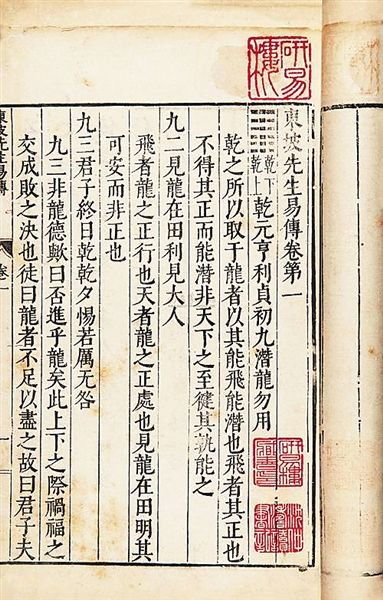 東坡先生易傳卷第一
乾下
乾上
乾元亨利貞初九潛龍勿用
乾之所以取于龍者以其能飛能潛也飛者其正也
不得其正而能潛非天下之至健其孰能之
九二見龍在田利見大人
飛者龍之正行也天者龍之正處也見龍在田明其
可安而非正也
九三君子終日乾乾夕惕若厲无咎
九三非龍德歟曰否進乎龍矣此上下之際禍福之
交成敗之決也徒曰龍者不足以盡之故曰君子夫
東坡先生易傳
卷一
研易樓